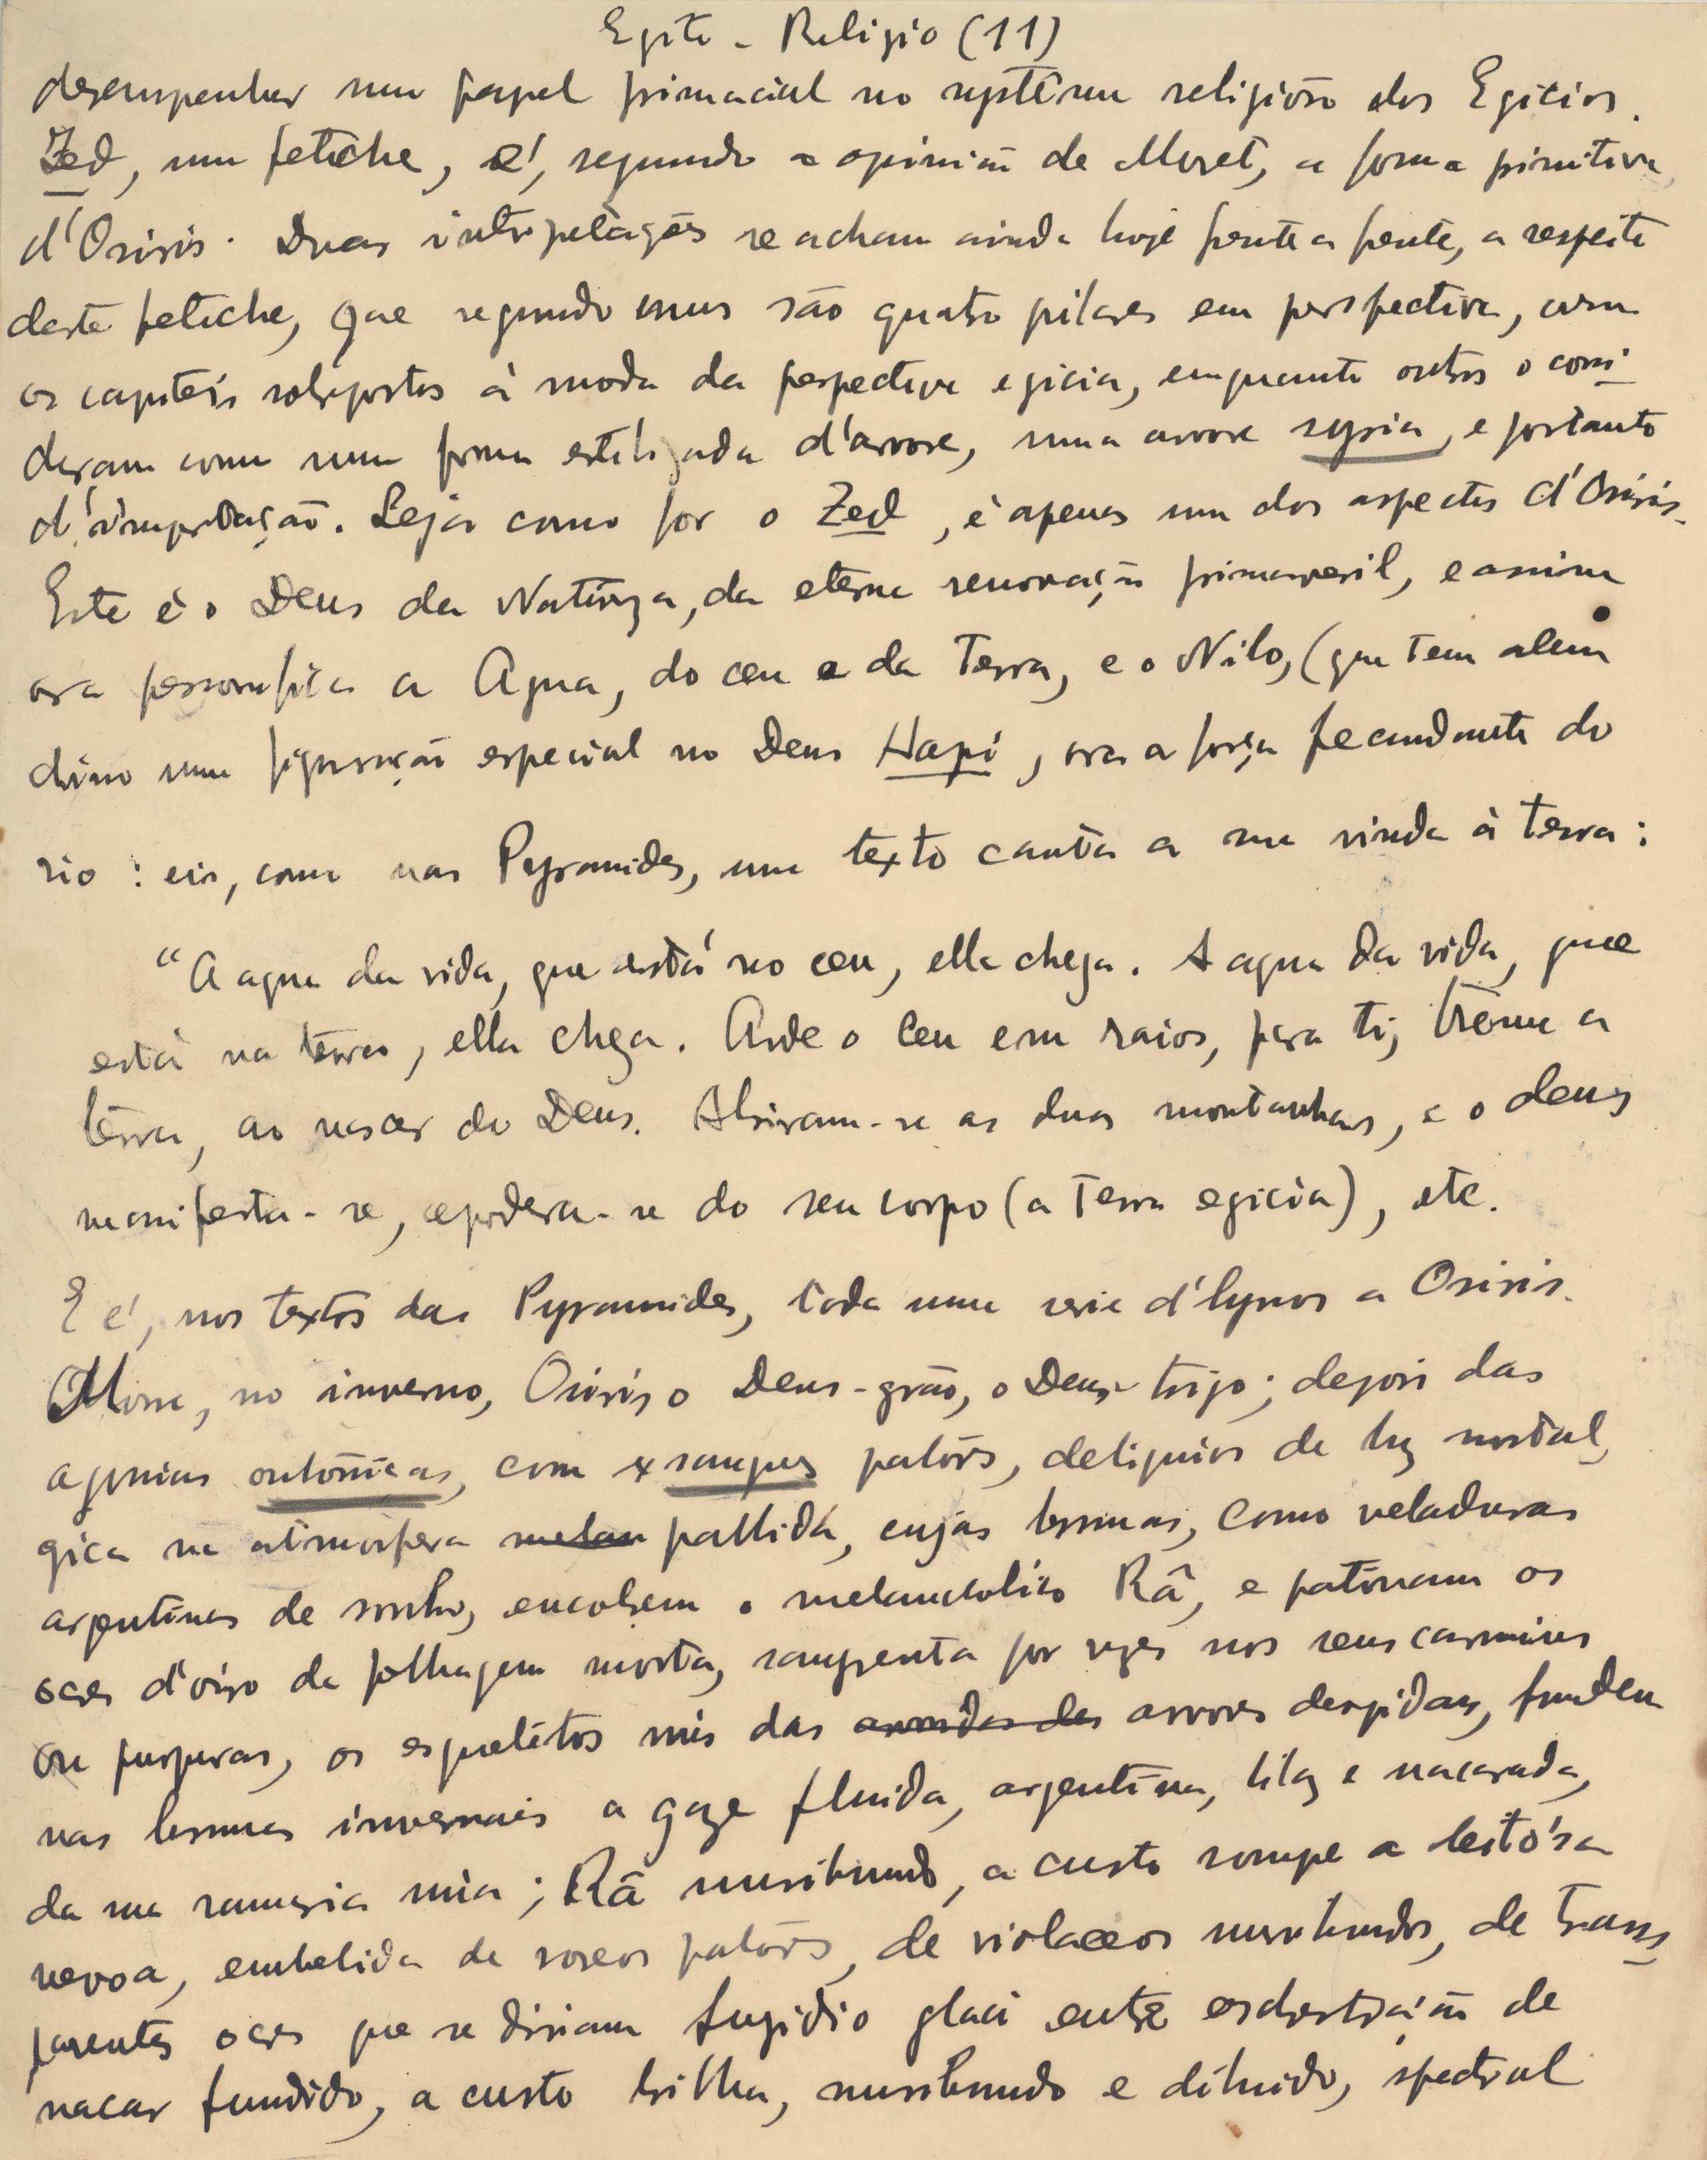 Egito - Religio (11)
desempenhar um papel primacial no systêma religioso dos Egicios.
Zed, um fetiche, é, segundo a opinião de Moret, a forma primitiva
d'Osiris. Duas interpetações se acham ainda hoje frente a frente, a respeito
deste fetiche, que segundo unus são quatro pilares em perspectiva, com
os capiteis sobrepostos à moda da perspectiva egicia, emquanto outros o consi-
deram como uma forma estilizada d'arvore, uma arvore syria, e portanto
d'importação. Seja como for o Zed, é apenas um dos aspectos d'Osiris.
Este é o Deus da Natureza, da eterna renovação primaveril, e assim
ora personifica a Agua, do ceu e da Terra, e o Nilo, (que tem alem
disso uma figuração especial no Deus Hapi, ora a força fecundante do
rio : eis, como nas Pyramides, um texto canta a sua vinda à terra :
"A agua da vida, que está no ceu, ella chega. A agua da vida, que
está na terra, ella chega. Arde o Ceu em raios, para ti, treme a
terra, ao nascer do Deus. Abriram-se as duas montanhas, e o deus
manifesta-se, apodera-se do seu corpo (a Terra egicia), etc.
E é, nos textos das Pyramides, toda uma serie d'hynos a Osiris.
Morre, no inverno, Osiris o Deus-grão, o Deus-trigo; depois das
agonias outonicas, com exsangues palôrs, deliquios de luz nostal-
gica na atmosfera melan pallida, cujas brumas, como veladuras
argentinas de sonho, encobrem o melancolico Râ, e patinam os
ocres d'oiro da folhagem morta, sangrenta por vezes nos seus carmins
ou purpuras, os esqueletos nús das arvores despidas, fundem
nas brumas invernais a gaze fluida, argentina, lilaz e nacarada,
da sua ramaria núa; Râ muribundo, a custo rompe a leitósa
nevoa, embebida de roseos palôrs, de violaceos muribundos, de trans-
parentes ocres que se diriam fugidio glaci entre orchestração de
nacar fundido, a custo brilha, muribundo e diluido, spectral